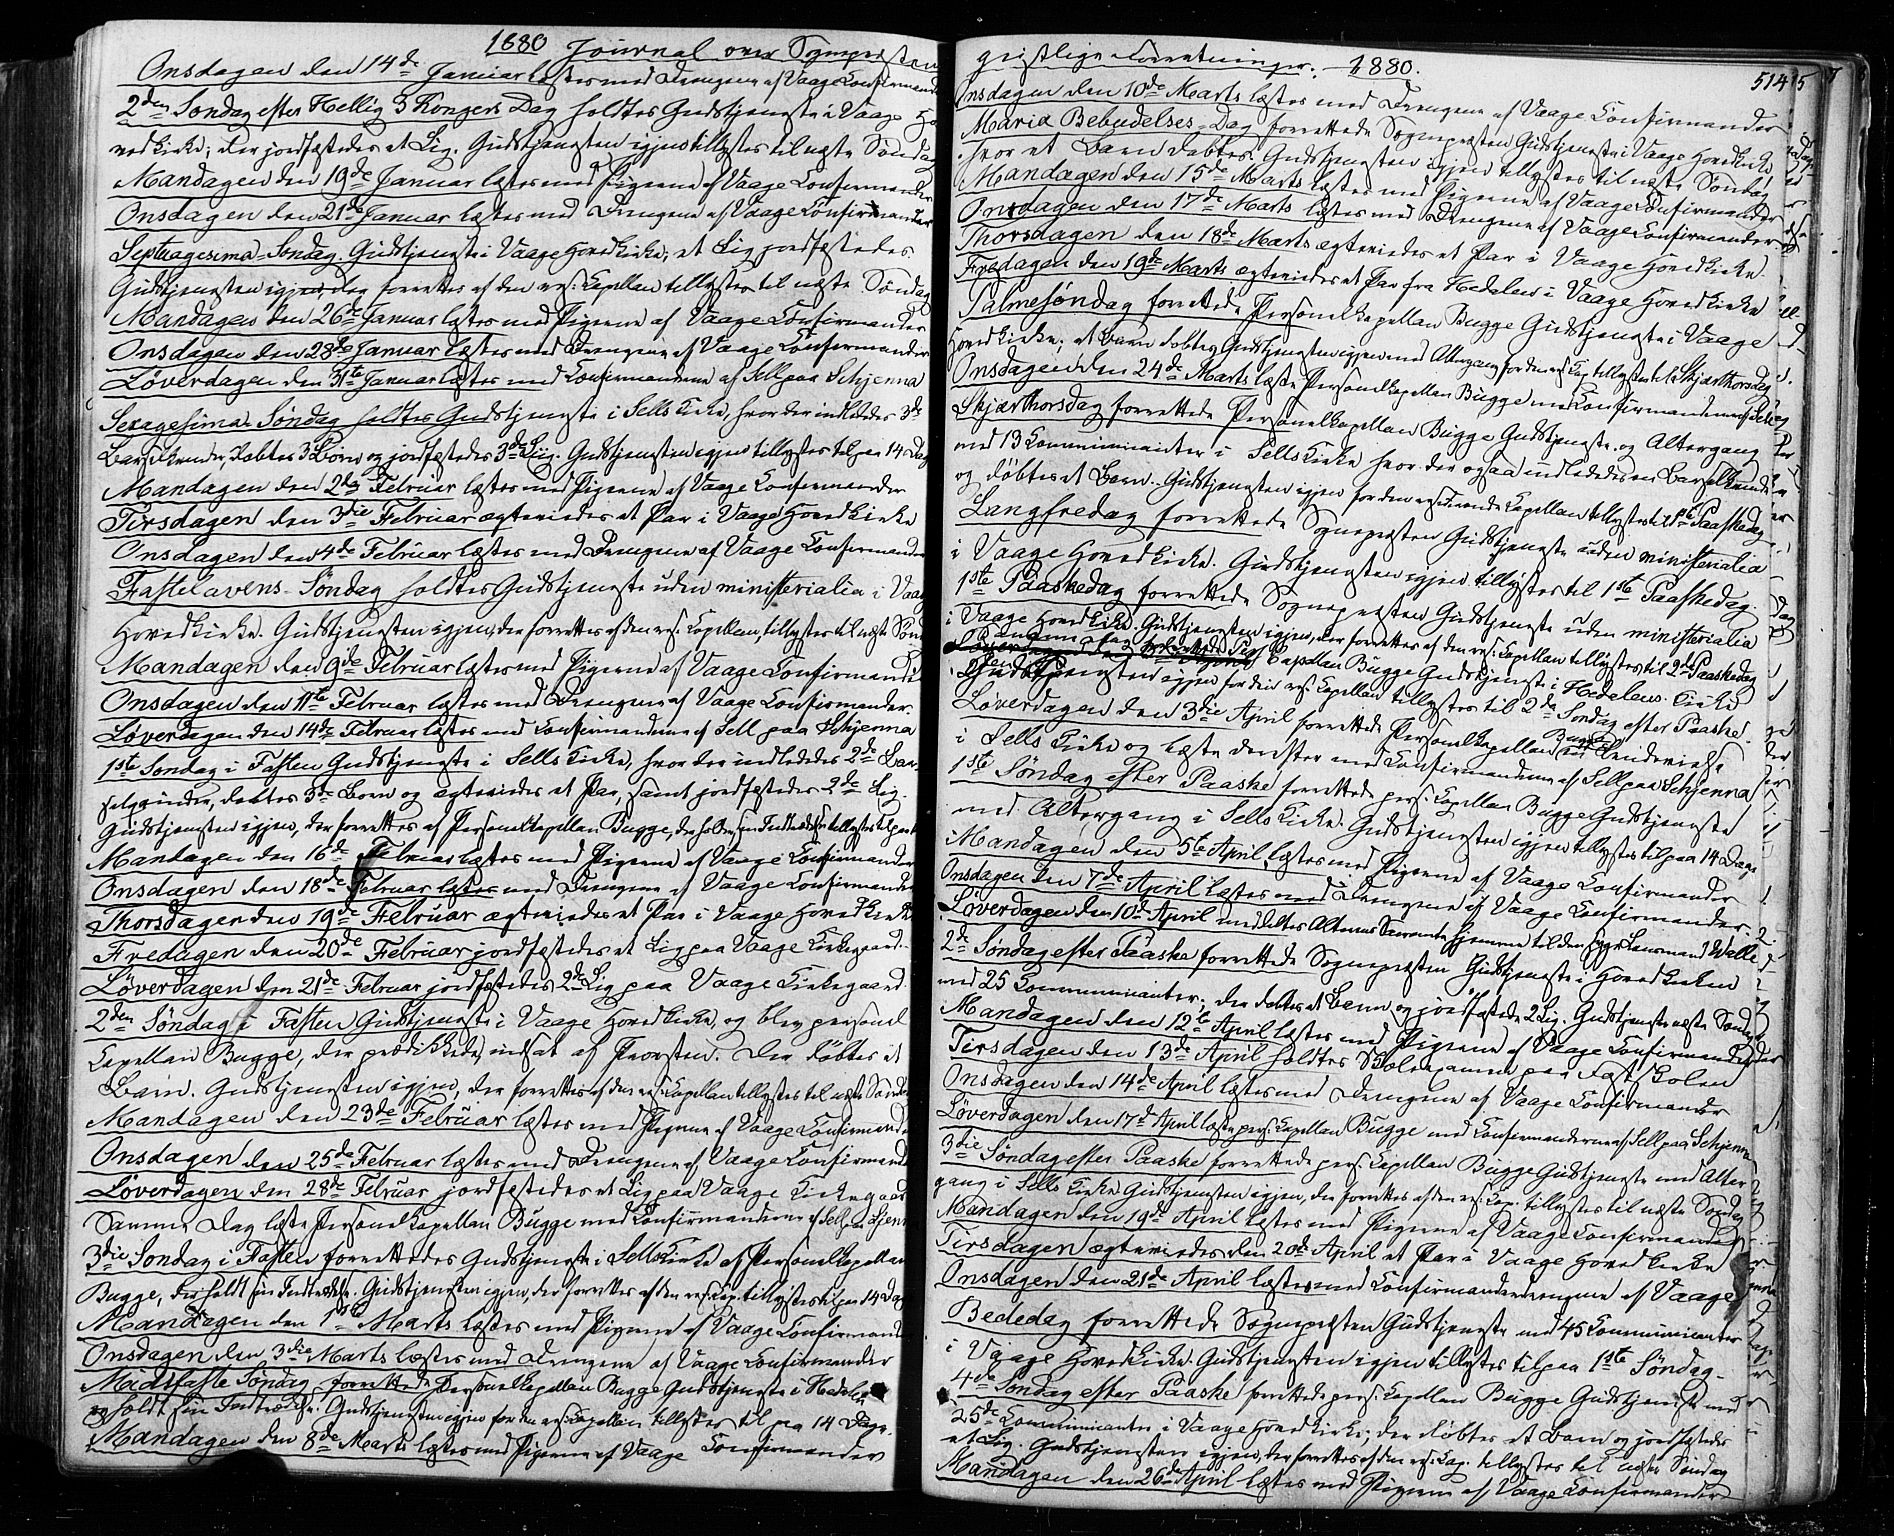 1880 Journal over Sognepræstens
Onsdagen den 14de Januar læstes med Drengene af Vaage Confirmander
2den Søndag efter Hellig 3 Kongers Dag holdtes Gudstjeneste i Vaage Ho
vedkirke; der jordfæstedes et Lig. Gudstjenesten igjen tillystes til næste Søndag
Mandagen den 19de Januar læstes med Pigerne af Vaage Confirmander
Onsdagen den 21de Januar læstes med Drengene af Vaage Confirmander
Septuagesima=Søndag. Gudstjeneste i Vaage Hovedkirke; et Lig jordfæstedes.
Gudstjenesten igjen, der forrettes af den res. Capellan tillystes til næste Søndag
Mandagen den 26de Januar læstes med Pigerne af Vaage Confirmander
Onsdagen den 28de Januar læstes med Drengene af Vaage Confirmander
Løverdagen den 31te Januar læstes med Confirmanderne af Sell paa Schjenna
Sexagesima=Søndag holdtes Gudstjeneste i Sells Kirke, hvor der indlededes 3de
Barselkvinder, døbtes 3 Børn og jordfæstedes 3de Lig. Gudstjenesten igjen tillystes til paa 14 Dag
Mandagen den 2den Februar læstes med Pigerne af Vaage Confirmander
Tirsdagen den 3die Februar ægteviedes et Par i Vaage Hovedkirke
Onsdagen den 4de Februar læstes med Drengene af Vaage Confirmander
Fastelavens-Søndag holdtes Gudstjeneste uden ministerialia i Vaage
Hovedkirke. Gudstjenesten igjen, der forrettes af den res. Capellan, tillystes til næste Sønd
Mandagen den 9de Februar læstes med Pigerne af Vaage Confirmander
Onsdagen den 11te Februar læstes med Drengene af Vaage Confirmander
Løverdagen den 14de Februar læstes med Confirmanderne af Sell paa Schjenna
1ste Søndag i Fasten Gudstjeneste i Sells Kirke, hvor der indlededes 2de Bar-
selqvinder, døbtes 3de Børn og ægteviedes et Par, samt jordfæstedes 2de Lig.
Gudstjenesten igjen, der forrettes af Personelkapellan Bugge, der holder sin Indtrædelse tillystes til paa
Mandagen den 16de Februar læstes med Pigerne af Vaage Confirmander
Onsdagen den 18de Februar læstes med Drengene af Vaage Confirmander
Thorsdagen den 19de Februar ægteviedes et Par i Vaage Hovedkirke
Fredagen den 20de Februar jordfæstedes et Lig paa Vaage Kirkegaard.
Løverdagen den 21de Februar jordfæstedes 2de Lig paa Vaage Kirkegaard.
2den Søndag i Fasten Gudstjeneste i Vaage Hovedkirke, og blev personel
Capellan Bugge, der prædikede, indsat af Provsten. Der døbtes et
Barn. Gudstjenesten igjen, der forrettes af den res. Capellan tillystes til næste Søndag
Mandagen den 23de Februar læstes med Pigerne af Vaage Confirmander
Onsdagen den 25de Februar læstes med Drengene af Vaage Confirmand
Løverdagen den 28de Februar jordfæstedes et Lig paa Vaage Kirkegaard
Samme Dag læste Personelkapellan Bugge med Confirmanderne af Sell paa Schjenn
3die Søndag i Fasten forrettedes Gudstjeneste i Sells Kirke af Personelkapellan
Bugge, der holdt sin Indtrædelse. Gudstjenesten igjen, der forrettes af den res. Cap. tillystes til paa 14 Dag
Mandagen den 1ste Marts læstes med Pigerne af Vaage Confirmand
Onsdagen den 3die Marts læstes med Drengene af Vaage Confirmander
Midfaste Søndag forrettede Personelkapellan Bugge Gudstjeneste i Hedalen
og holdt sin Indtrædelse. Gudstjenesten igjen for den res. Capellan tillystes til paa 14 Dage.
Mandagen den 8de Marts læstes med Pigerne af Vaage Confirmander
geistlige Forretninger. 1880.
514
Onsdagen den 10de Marts læstes med Drengene af Vaage Confirmander
Mariæ Bebudelses-Dag forrettede Sognepræsten Gudstjeneste i Vaage Hovedkirke,
hvor et Barn døbtes. Gudstjenesten igjen tillystes til næste Søndag
Mandagen den 15de Marts læstes med Pigerne af Vaage Confirmander
Onsdagen den 17de Marts læstes med Drengene af Vaage Confirmander
Thorsdagen den 18de Marts ægteviedes et Par i Vaage Hovedkirke.
Fredagen den 19de Marts ægteviedes et Par fra Hedalen i Vaage Hovedkirke
Palmesøndag forrettede Personelkapellan Bugge Gudstjeneste i Vaage
Hovedkirke; et Barn døbtes. Gudstjenesten igjen med Altergang for den res. Cap. tillystes til Skjærthorsdag
Onsdagen den 24de Marts læste Personelkapellan Bugge med Confirmanderne af Sell
Skjærthorsdag forrettede Personelkapellan Bugge Gudstjeneste og Altergang
med 13 Communicanter i Sells Kirke hvor der ogsaa indlededes en Barselkvinde
og døbtes et Barn. Gudstjenesten igjen for den res. Capellan tillystes til 1ste Paaskedag
Langfredag forrettede Sognepræsten Gudstjeneste uden ministerialia
i Vaage Hovedkirke. Gudstjenesten igjen tillystes til 1ste Paaskedag.
1ste Paaskedag forrettede Sognepræsten Gudstjeneste uden ministerialia
i Vaage Hovedkirke. Gudstjenesten igjen, der forrettes af den res. Capellan tillystes til 2den Paaskedag
Capellan Bugge Gudstjeneste i Hedalens Kirke
Gudstjenesten igjen for den res. Capellan tillystes til 2de Søndag efter Paaske.
Løverdagen den 3die April forrettede Personelkapellan Bugge
i Sells Kirke og læste derefter med Confirmanderne af Sell paa Schjenna
1ste Søndag efter Paaske forrettede pers. Capellan Bugge Gudstjeneste
med Altergang i Sells Kirke. Gudstjenesten igjen tillystes til paa 14 Dage
Mandagen den 5te April læstes med Pigerne af Vaage Confirmander
Onsdagen den 7de April læstes med Drengene af Vaage Confirmander.
Løverdagen den 10de April meddeltes Alterens Sacramente hjemme til den syge Lensmand Wolle
2de Søndag efter Paaske forrettede Sognepræsten Gudstjeneste i Hovedkirken
med 25 Communicanter; der døbtes et Barn og jordfæstede 2 Lig. Gudstjeneste næste Søndag
Mandagen den 12te April læstes med Pigerne af Vaage Confirmander
Tirsdagen den 13de April holdtes Skoleexamen paa Fastskolen
Onsdagen den 14de April læstes med Drengene af Vaage Confirmander
Løverdagen den 17de April læste pers. Capellan Bugge med Confirmanderne af Sell paa Schjenna
3die Søndag efter Paaske forrettede pers. Capellan Bugge Gudstjeneste med Alter
gang i Sells Kirke. Gudstjenesten igjen, der forrettes af den res. Cap. tillystes til næste Søndag
Mandagen den 19de April læstes med Pigerne af Vaage Confirmander
Tirsdagen ægteviedes den 20de April et Par i Vaage Hovedkirke
Onsdagen den 21de April læstes med Confirmanddrengene af Vaage
Bededag forrettede Sognepræsten Gudstjeneste med 45 Communicanter
i Vaage Hovedkirke. Gudstjenesten igjen tillystes til paa 1ste Søndag.
4de Søndag efter Paaske forrettede pers. Capellan Bugge Gudstjeneste med
25de Communicanter i Vaage Hovedkirke; der døbtes et Barn og jordfæstedes
et Lig. Gudstjenesten igjen, der forrettes af den res. Cap. tillystes til næste Søndag
Mandagen den 26de April læstes med Pigerne af Vaage Confirmander